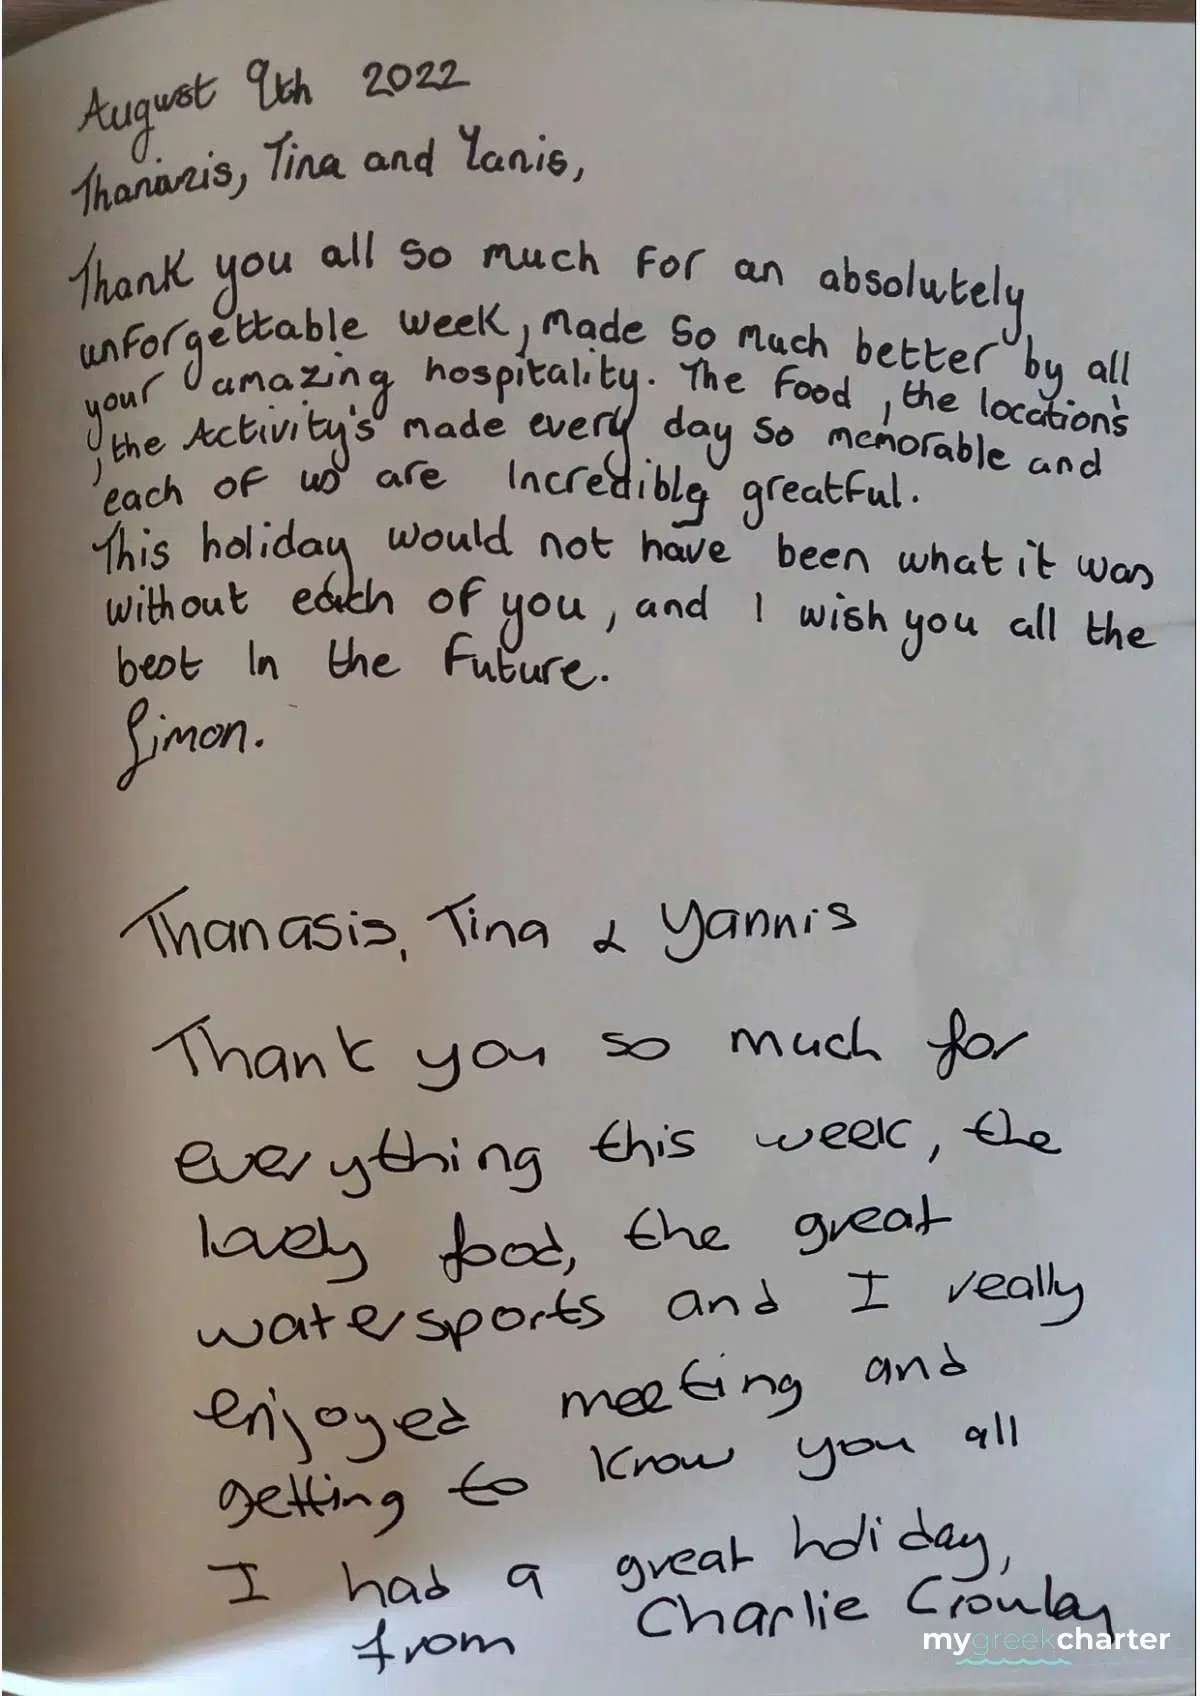 August 9th 2022
Thanánzis, Tina and Yanis,
Thank you all so much for an absolutely
unforgettable week, made so much better by all
your amazing hospitality. The food, the location's
, the Activity's made every day so memorable and
each of us are Incredibly greatful.
This holiday would not have been what it was
without each of you, and I wish you all the
best In the future.
Simon.
Thanasis, Tina & Yannis
Thank you so much for
everything this week, the
lovely food, the great
watersports and I really
enjoyed meeting and
getting to know you all
I had a great holiday,
from Charlie Crowley
mygreekcharter